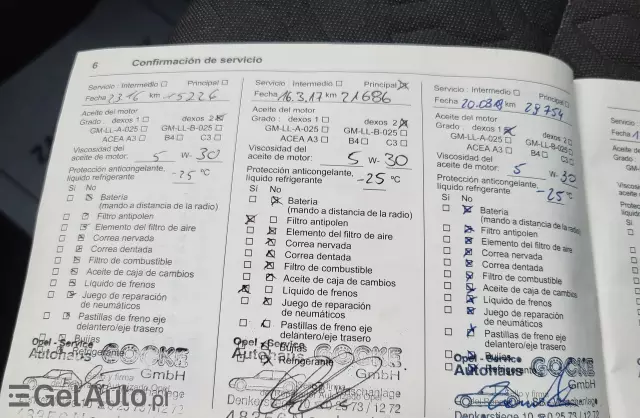 6 Confirmación de servicio
Servicio: Intermedio Principal
Fecha km 15226
Aceite del motor
Grado: dexos 1 dexos 2
GM-LL-A-025 GM-LL-B-025
ACEA A3 B4 C3
Viscosidad del
aceite de motor: 5 W- 30
Protección anticongelante,
líquido refrigerante -25 °C
Sí No
Batería
(mando a distancia de la radio)
Filtro antipolen
Elemento del filtro de aire
Correa nervada
Correa dentada
Filtro de combustible
Aceite de caja de cambios
Líquido de frenos
Juego de reparación
de neumáticos
Pastillas de freno eje
delantero/eje trasero
Bujías
Refrigerante
Opel - Service
Autohaus COOKE
GmbH
Servicio: Intermedio Principal
Fecha 16.3.17 km 21686
Aceite del motor
Grado: dexos 1 dexos 2
GM-LL-A-025 GM-LL-B-025
ACEA A3 B4 C3
Viscosidad del
aceite de motor: 5 W- 30
Protección anticongelante,
líquido refrigerante -25 °C
Sí No
Batería
(mando a distancia de la radio)
Filtro antipolen
Elemento del filtro de aire
Correa nervada
Correa dentada
Filtro de combustible
Aceite de caja de cambios
Líquido de frenos
Juego de reparación
de neumáticos
Pastillas de freno eje
delantero/eje trasero
Bujías
Refrigerante
Opel - Service
Autohaus COOKE
GmbH
Servicio: Intermedio Principal
Fecha km 28754
Aceite del motor
Grado: dexos 1 dexos 2
GM-LL-A-025 GM-LL-B-025
ACEA A3 B4 C3
Viscosidad del
aceite de motor: 5 W- 30
Protección anticongelante,
líquido refrigerante -25 °C
Sí No
Batería
(mando a distancia de la radio)
Filtro antipolen
Elemento del filtro de aire
Correa nervada
Correa dentada
Filtro de combustible
Aceite de caja de cambios
Líquido de frenos
Juego de reparación
de neumáticos
Pastillas de freno eje
delantero/eje trasero
Bujías
Refrigerante
Opel - Service
Autohaus COOKE
GmbH
GetAuto.pl